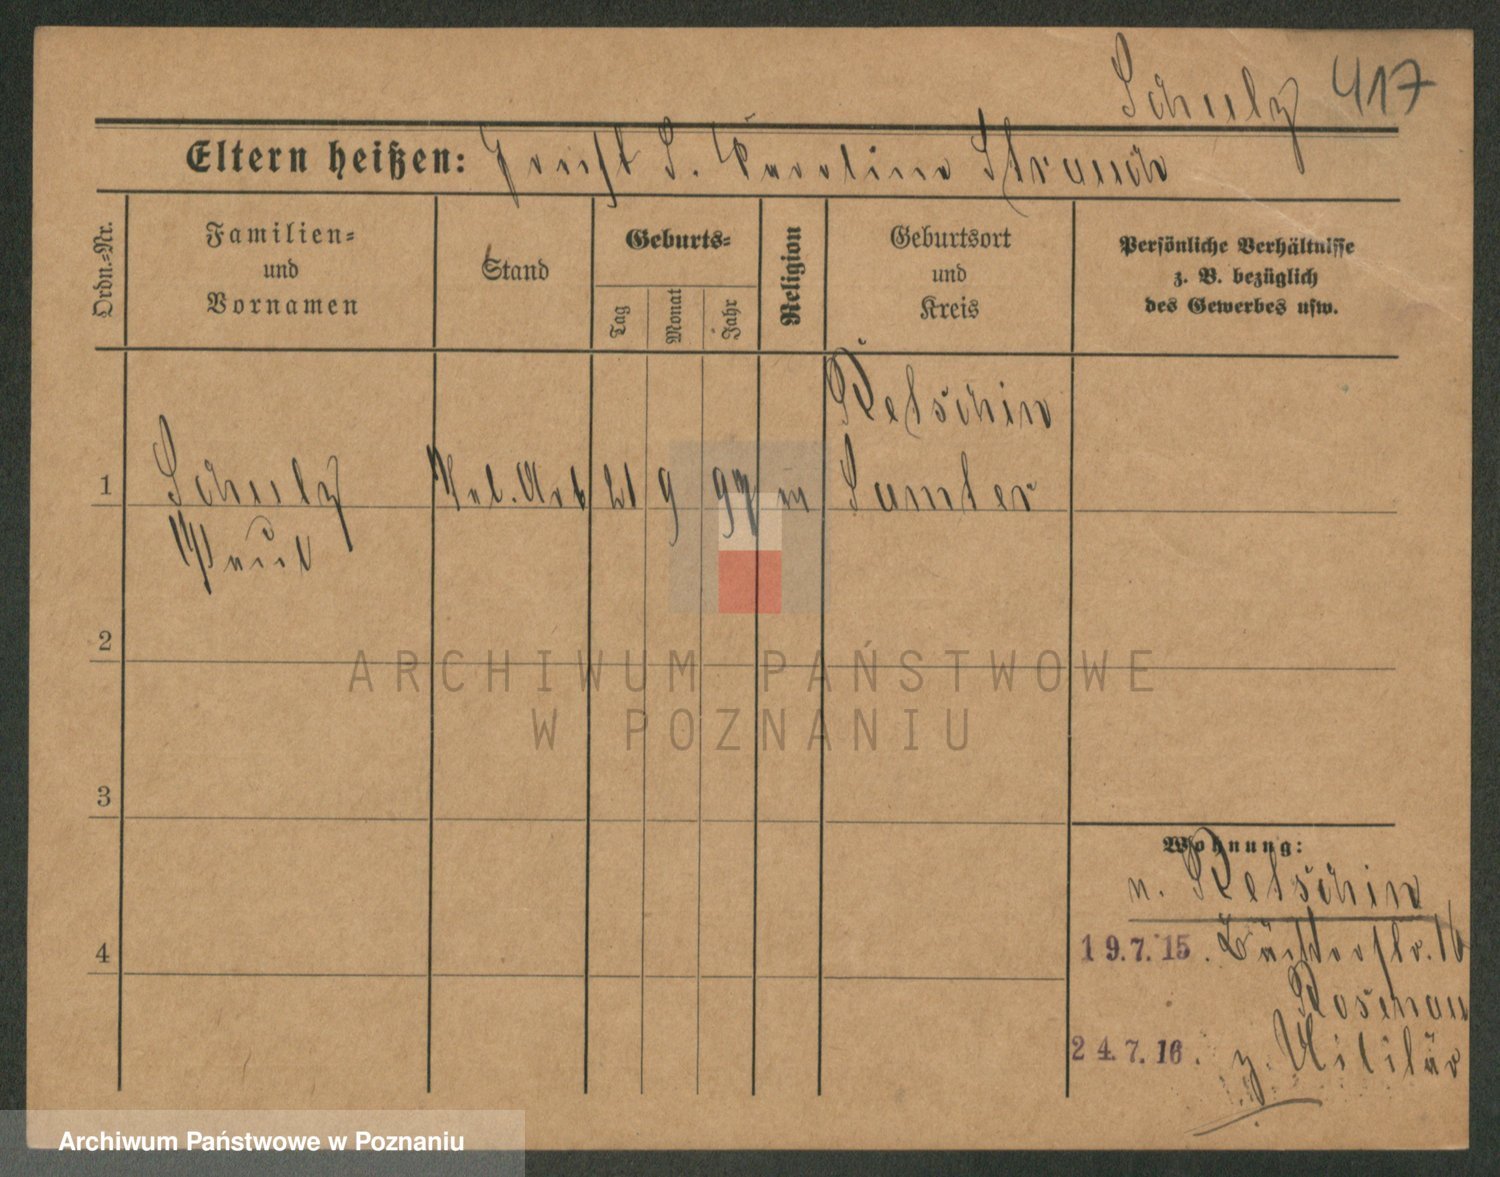 Schulz 417
Eltern heißen: S. Karoline Strauch
Ordn.-Nr.
Familien-
und
Vornamen
Stand
Geburts-
Tag
Monat
Jahr
Religion
Geburtsort
und
Kreis
Persönliche Verhältnisse
z. B. bezüglich
des Gewerbes usw.
Retschin
1 Schulz Arb 21 9 97 Samter
Paul
2
ARCHIWUM PAŃSTWOWE
W POZNANIU
3
Wohnung:
n. Retschin
4
19.7.15. 16
Rosenau
24.7.16. z. Militär
Archiwum Państwowe w Poznaniu